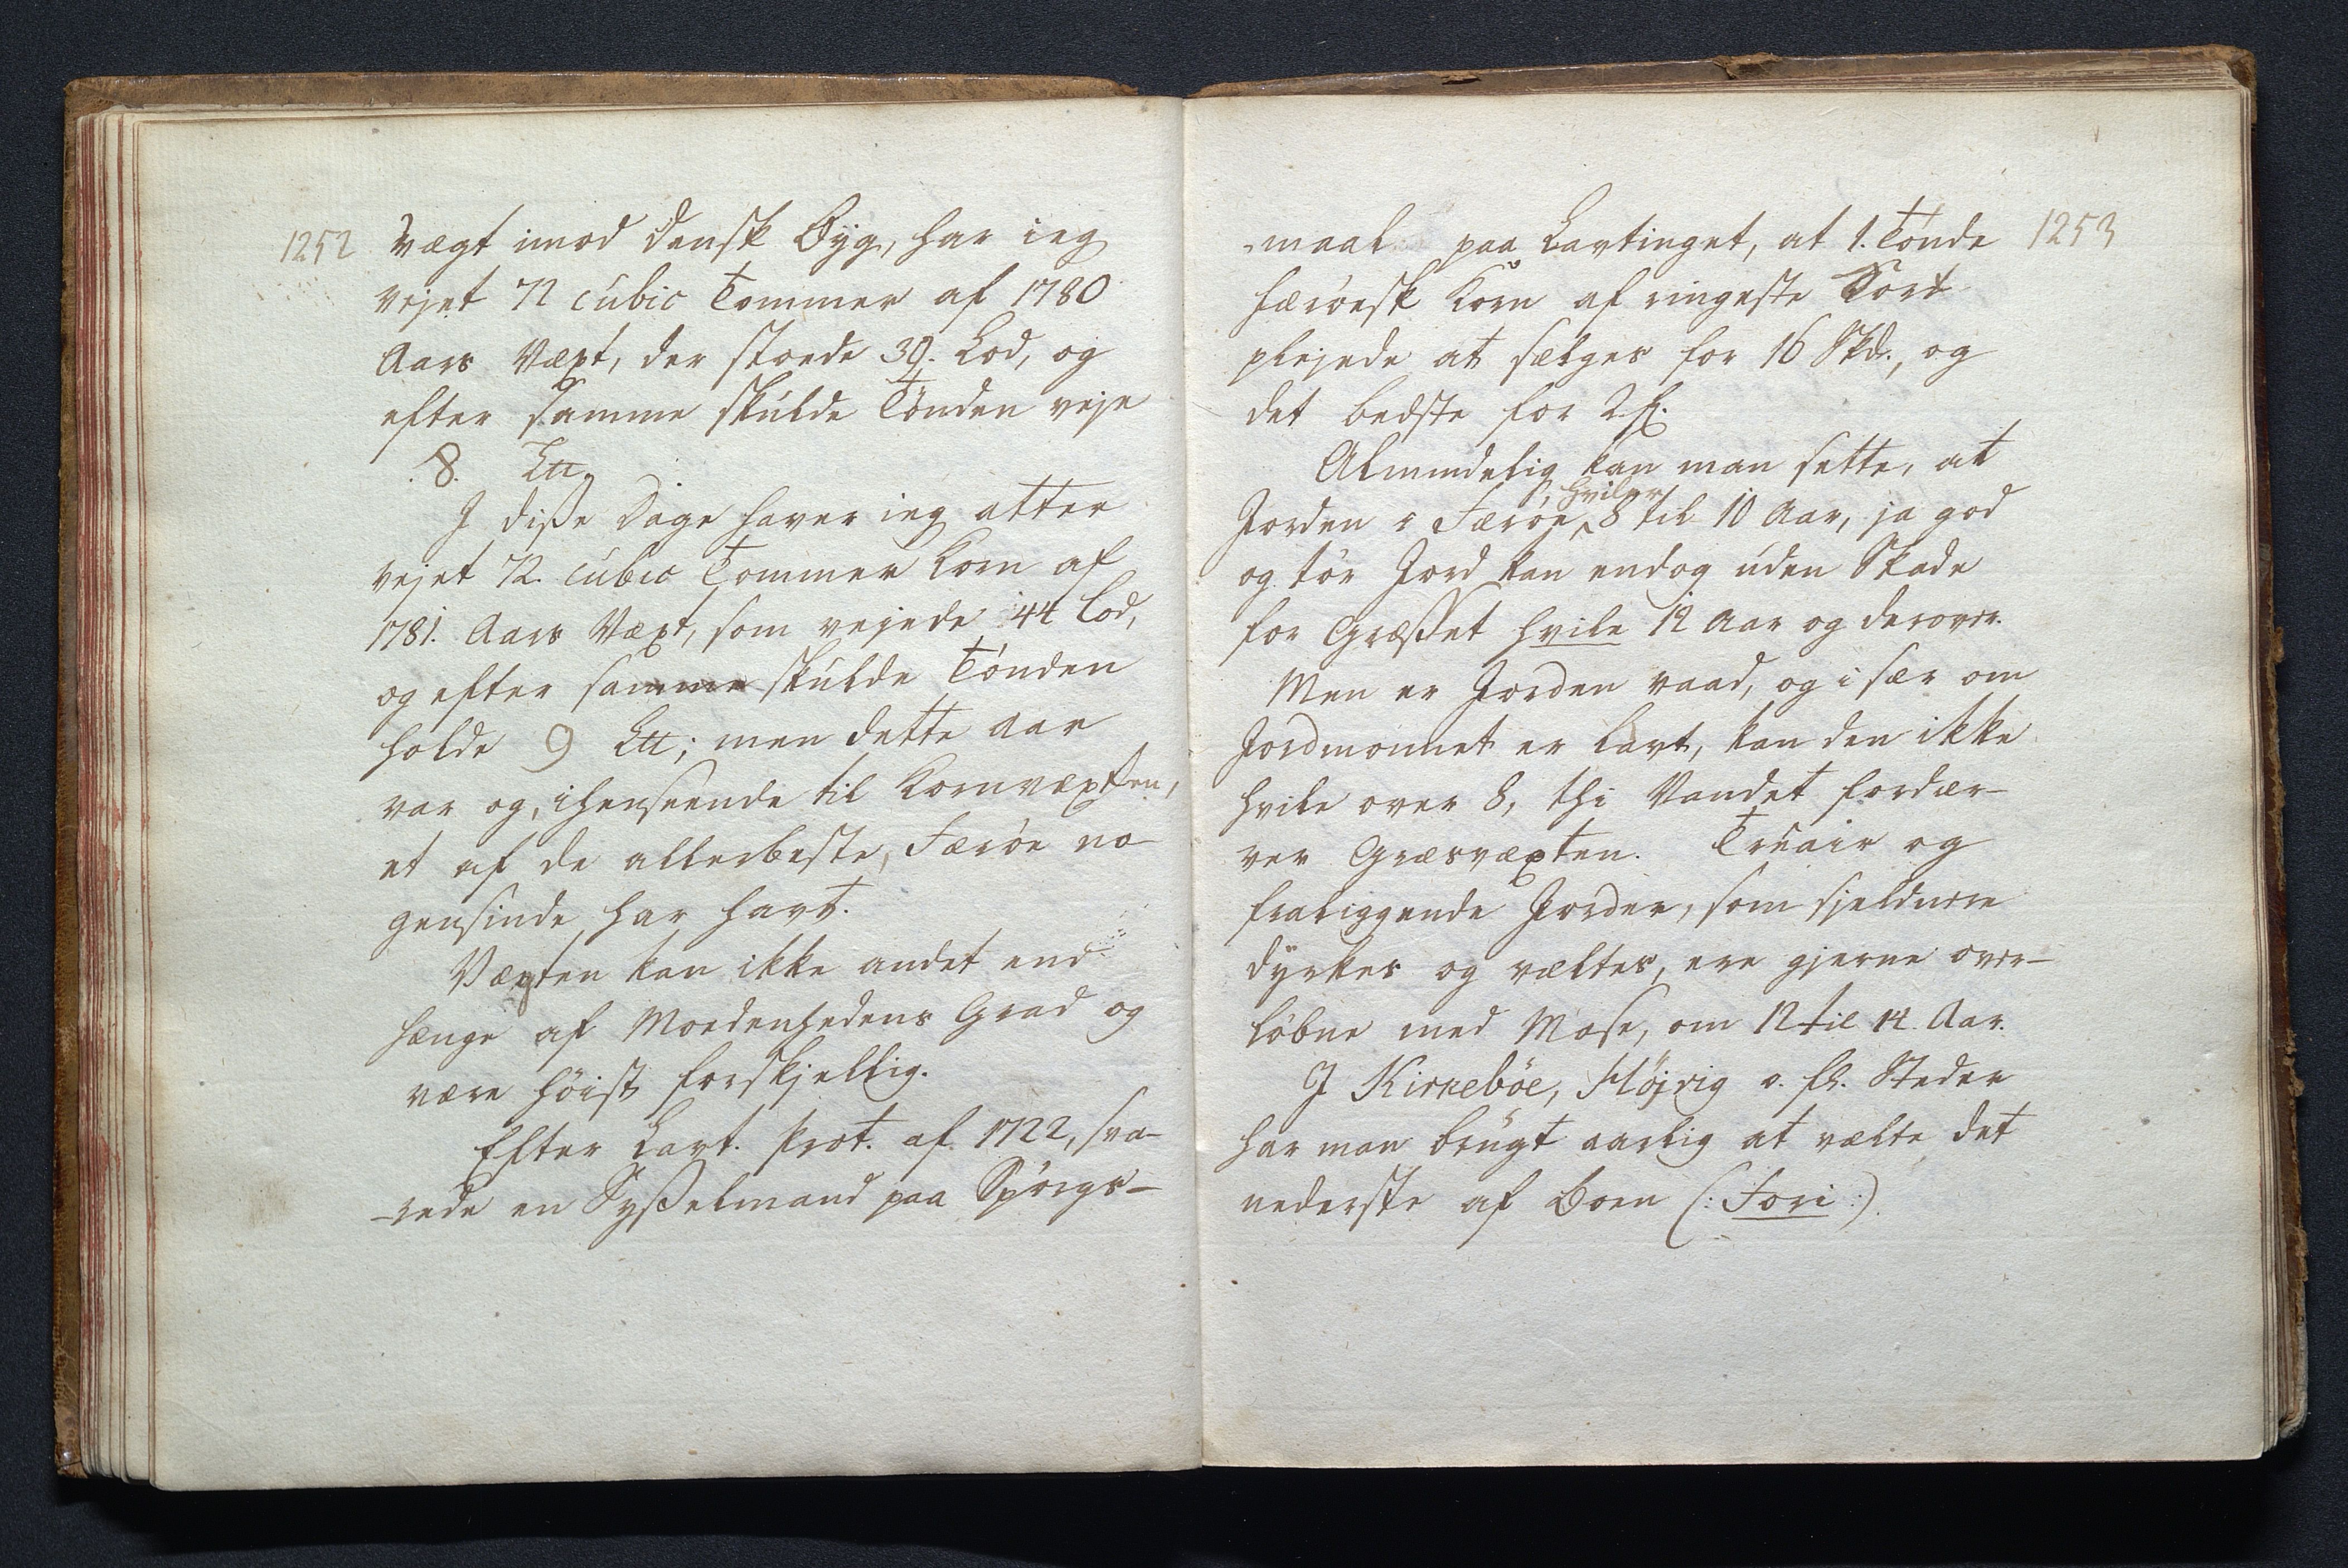 1252
vægt imod dansk Byg, har ieg
vejet 72 cubic Tommer af 1780
Aars Væxt, der stoede 39. Lod, og
efter samme skulde Tønden veje
8. L℔.
I diße Dage haver ieg atter
vejet 72. cubic Tommer Korn af
1781. Aars Væxt, som vejede 44 Lod,
og efter samme skulde Tønden
holde 9 L℔; men dette Aar
var og, ihenseende til Kornvæxten,
et af de allerbeste, Færøe no-
gensinde har havt.
Vægten kan ikke andet end
hænge af Modenhedens Grad og
være høist forskjellig.
Efter Lavt. Prot. af 1722, sva-
-rede en Syßelmand paa Spørgs-
1253
-maal paa Lavtinget, at 1. Tønde
færøesk Korn af ringeste Sort
plejede at sælges for 16 Skd., og
det bedste for 2
Almindelig kan man sette, at
Jorden i Færøe hviler 8 til 10 Aar, ja god
og tør Jord kan endog uden Skade
for Græsset hvile 12 Aar og derover.
Men er Jorden vaad, og i sær om
Jordmonnet er Lavt, kan den ikke
hvile over 8, thi Vandet fordær-
ver Græsvæxten. Trúair og
fraliggende Jorder, som sjeldnere
dyrkes og væltes, ere gjerne over-
løbne med Mose, om 12 til 14. Aar.
I Kirkebøe, Højvig o. fl. Steder
har man brugt aarlig at vælte det
nederste af Boen (: Fori :).